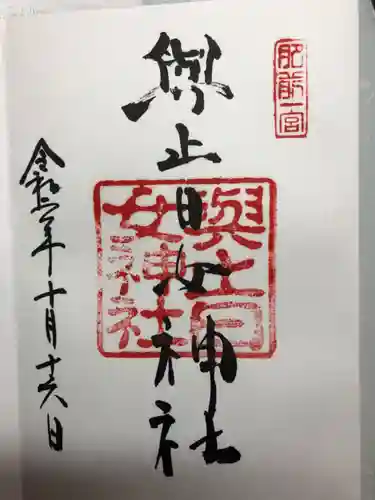 肥前一宮
與止日女神社
與止日女神社
令和二年十月十六日